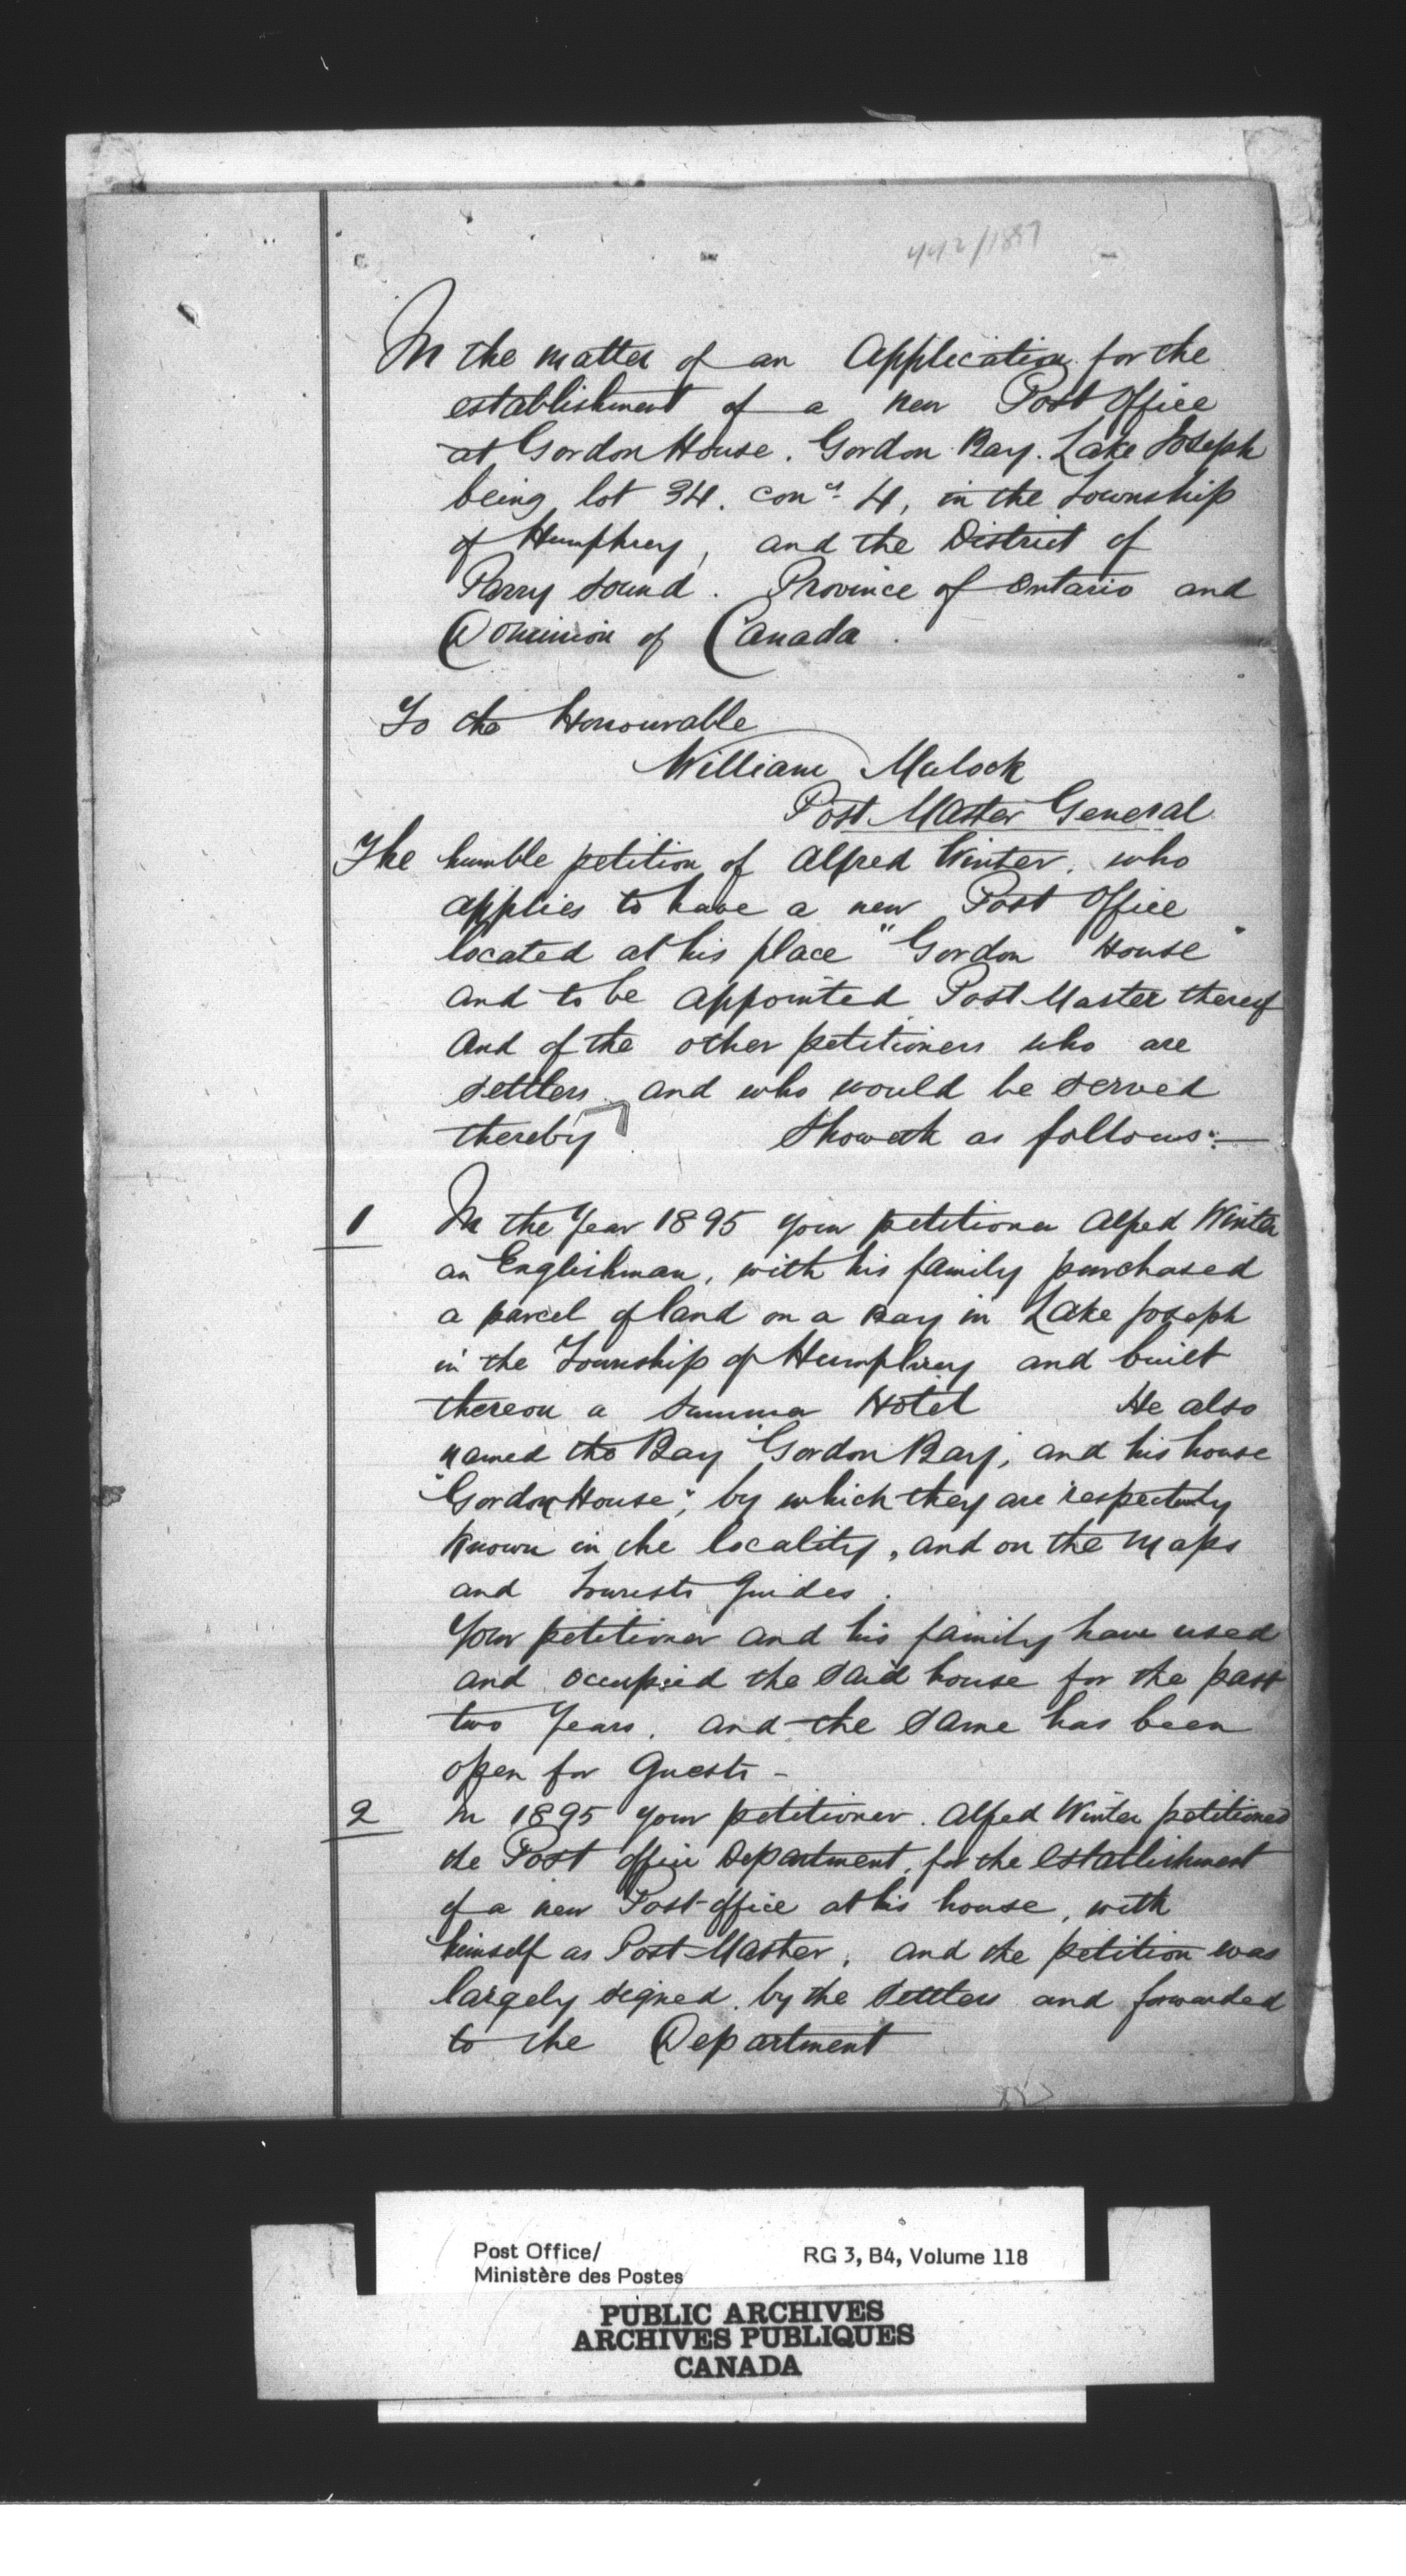 442/1897
In the matter of an Application for the
establishment of a new Post Office
at Gordon House. Gordon Bay. Lake Joseph
being lot 34. con 4, in the Township
of Humphrey, and the District of
Parry Sound. Province of Ontario and
Dominion of Canada.
To the Honourable
William Mulock
Post Master General
The humble petition of Alfred Winter, who
applies to have a new Post Office
located at his place "Gordon House"
and to be appointed Post Master thereof
and of the other petitioners who are
settlers and who would be served
thereby Showeth as follows:—
1 In the Year 1895 your petitioner Alfred Winter
an Englishman, with his family purchased
a parcel of land on a Bay in Lake Joseph
in the Township of Humphrey and built
thereon a Summer Hotel He also
named the Bay Gordon Bay, and his house
"Gordon House", by which they are respectively
known in the locality, and on the Maps
and Tourists Guides.
Your petitioner and his family have used
and occupied the said house for the past
two Years, and the same has been
open for Guests -
2 In 1895 your petitioner. Alfred Winter petitioned
the Post Office Department, for the establishment
of a new Post-office at his house, with
himself as Post Master, and the petition was
largely signed by the Settlers and forwarded
to the Department
Post Office/ RG 3, B4, Volume 118
Ministère des Postes
PUBLIC ARCHIVES
ARCHIVES PUBLIQUES
CANADA